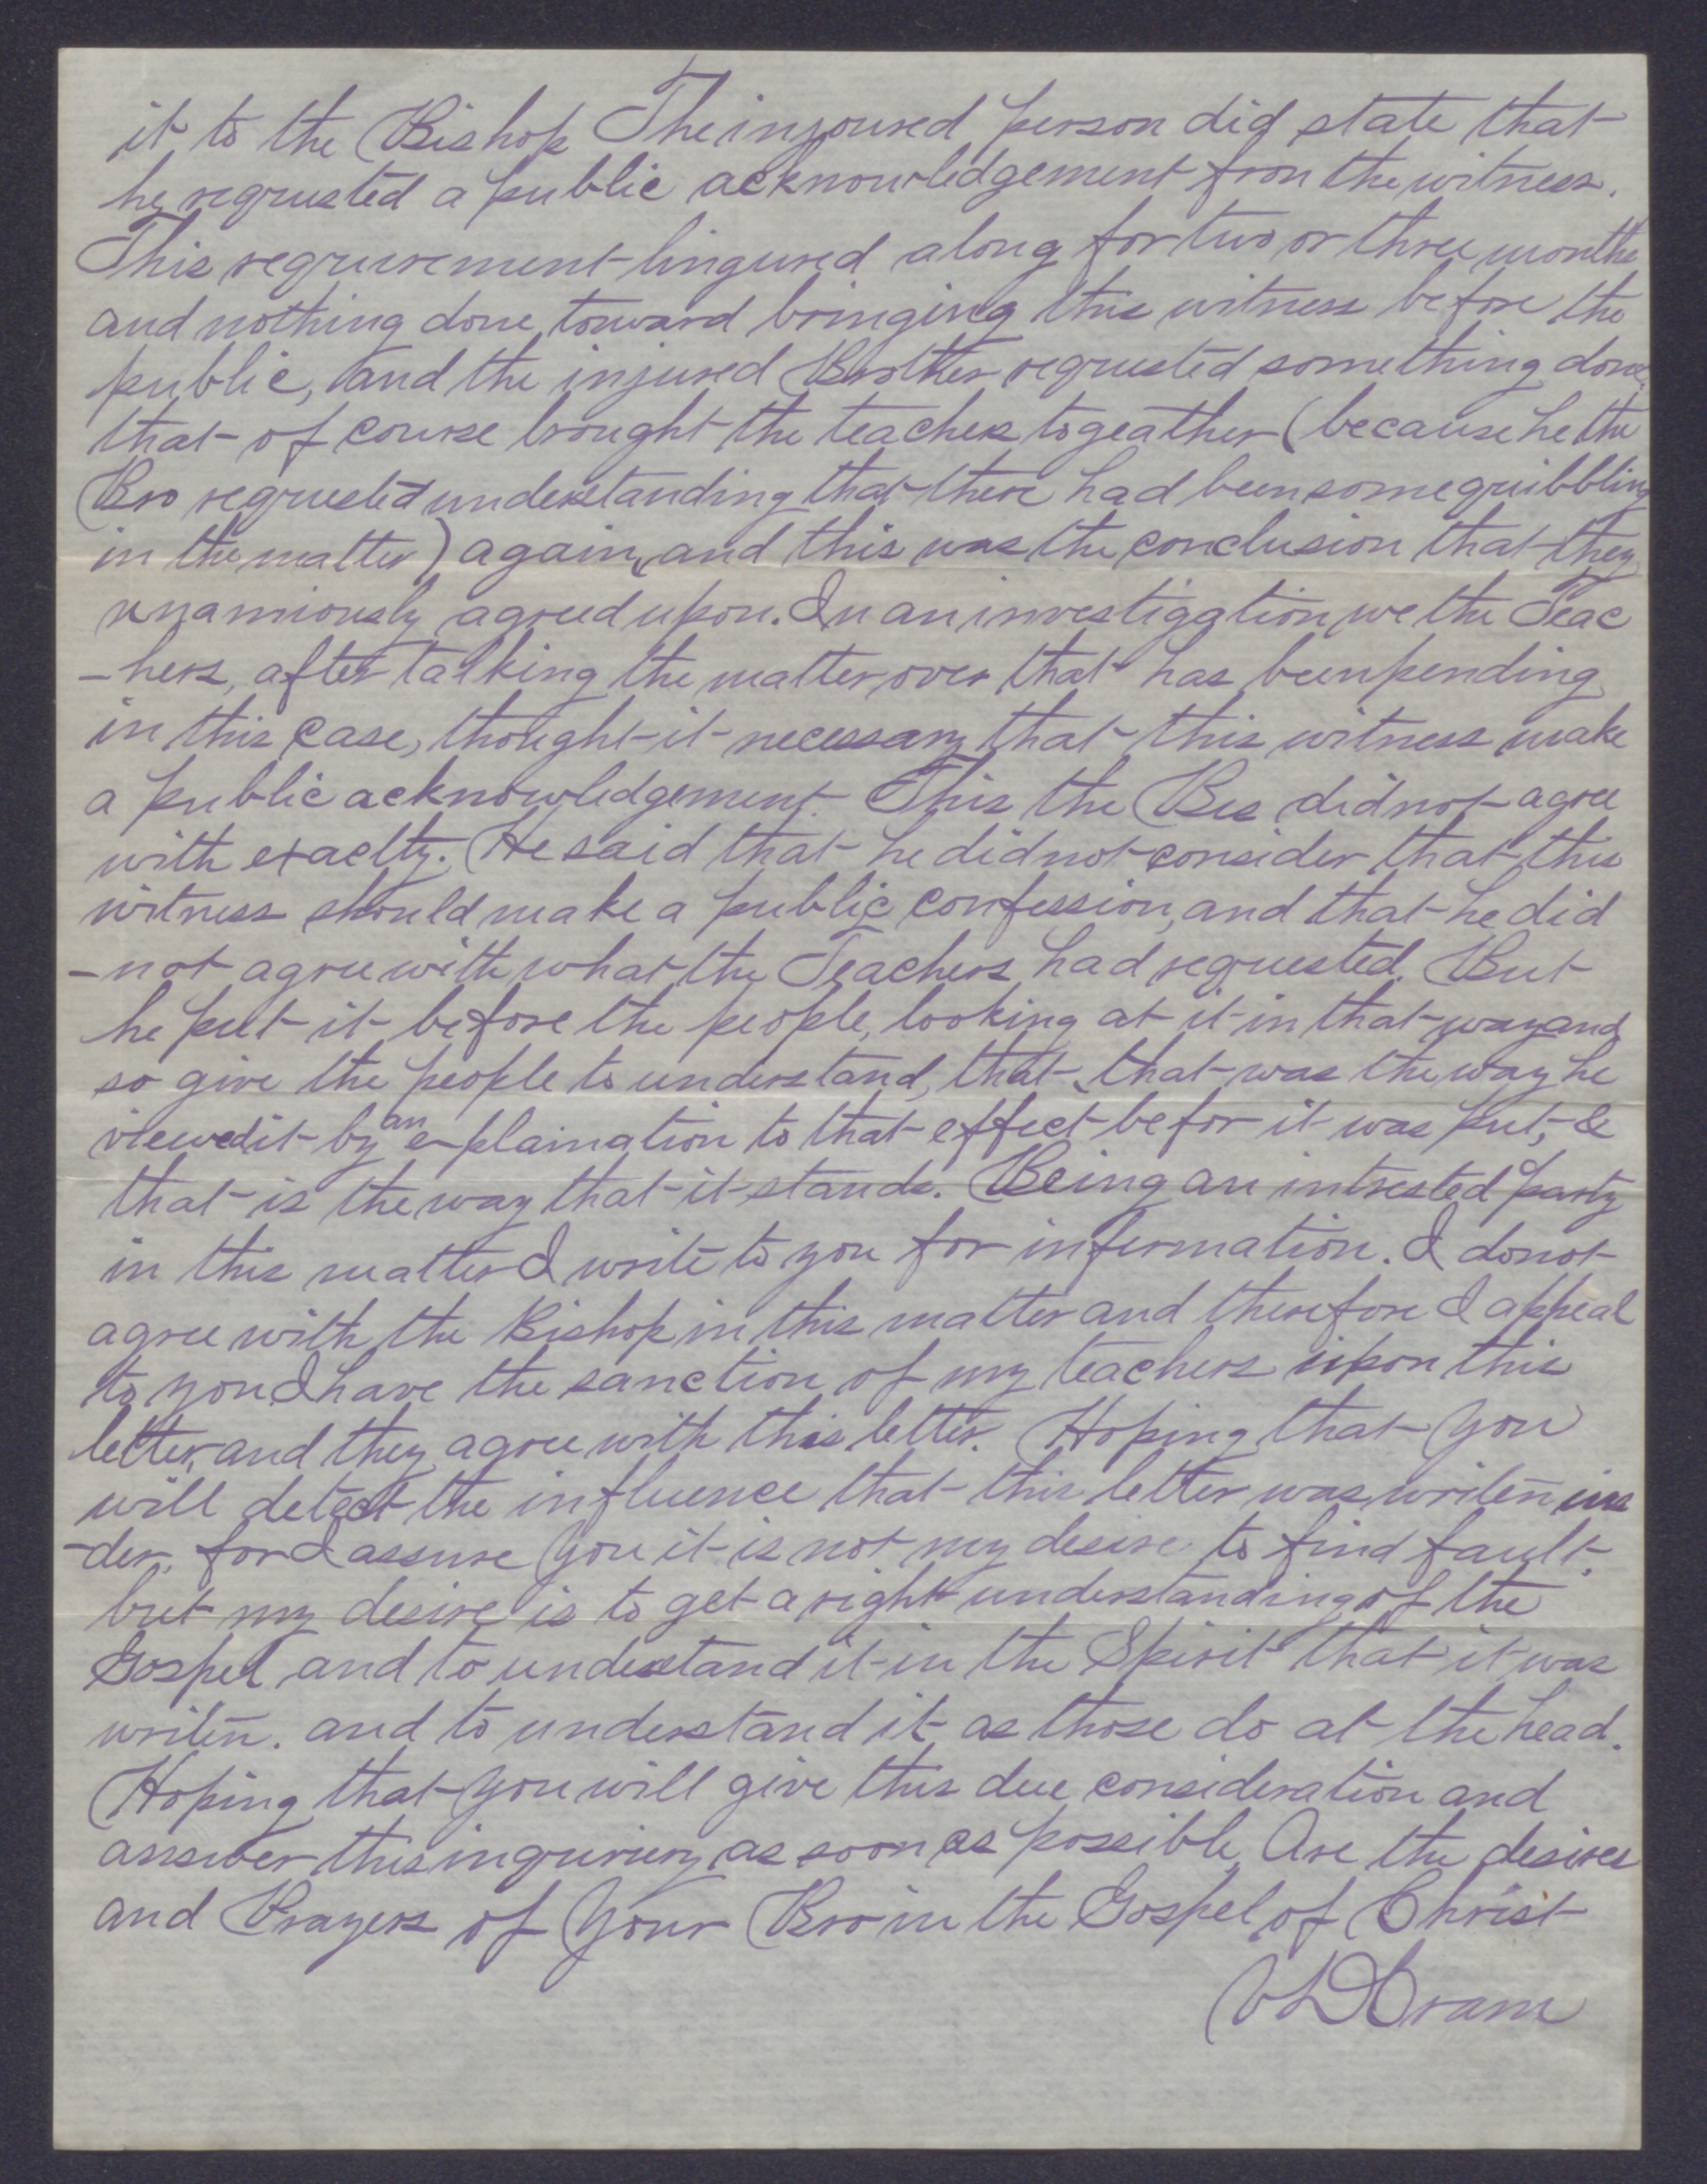 it to the Bishop The injoured person did state that
he requested a public acknowledgement fron the witness.
This requirement lingured along for two or three months
and nothing done toward bringing this witness before the
public, and the injured Brother requested something done.
that of course brought the teachers togeather (because he the
Bro requested understanding that there had been some quibbling
in the matter) again, and this was the conclusion that they
unamiously agreed upon. In an investigation we the Teac
-hers, after talking the matter over that has been pending
in this case, thought it necessary that this witness make
a public acknowledgement. This the Bis did not agree
with exaclty. He said that he did not consider that this
witness should make a public confession, and that he did
-not agree with what the Teachers had requested. But
he put it before the people, looking at it in that way and
so give the people to understand, that that was the way he
viewed it by an explaination to that effect befor it was put, &
that is the way that it stands. Being an intrested party
in this matter I write to you for infermation. I do not
agree with the Bishop in this matter and therefore I appeal
to you I have the sanction of my teachers upon this
letter, and they agree with this letter. Hoping that you
will detect the influence that this letter was writen un
-der, for I assure you it is not my desire to find fault.
but my desire is to get a right understanding of the
Gospel and to understand it in the Spirit that it was
writen. and to understand it as those do at the head.
Hoping that you will give this due consideration and
answer this inquiriry as soon as possible Are the desires
and Prayers of Your Bro in the Gospel of Christ
Cram